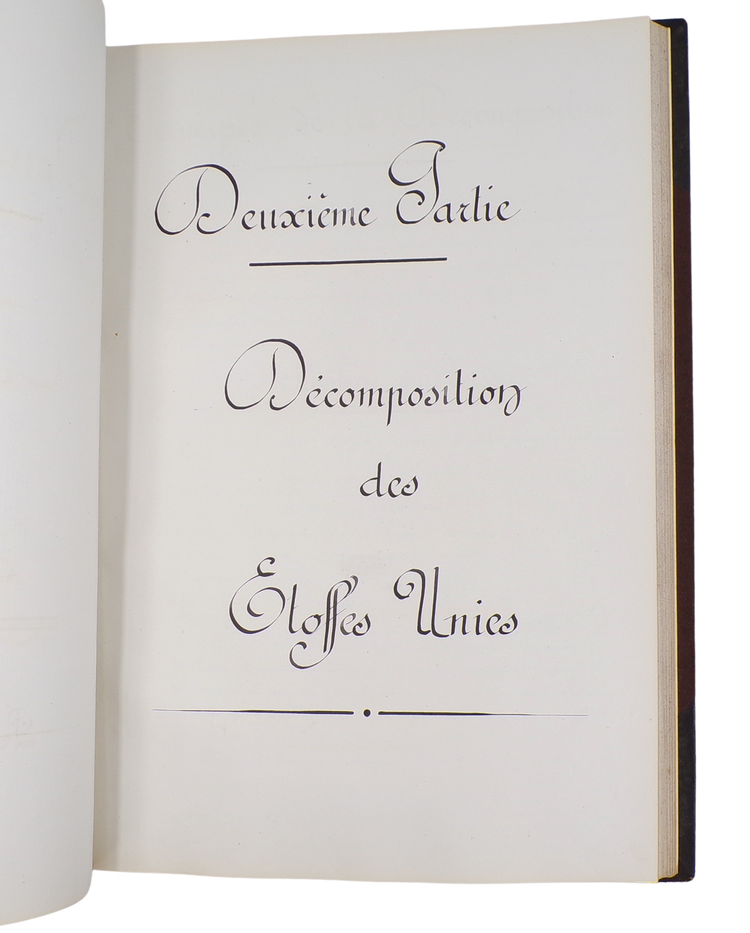 Deuxième Partie
Décomposition
des
Etoffes Unies